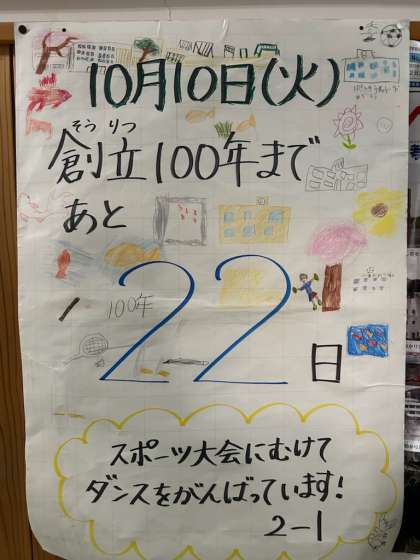 10月10日(火)
そう りつ
創立100年まで
あと
100年
22日
スポーツ大会にむけて
ダンスをがんばっています!
2-1